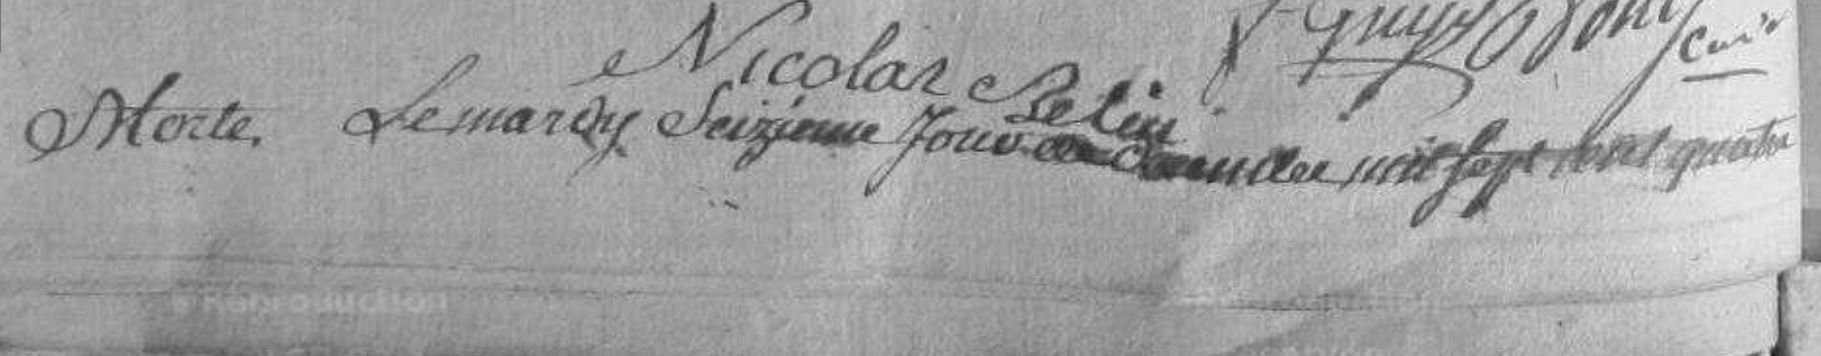 Curé
Nicolas Pelin
Morte. Le mardy Seizieme Jour de mil sept cent quatre
Reproduction